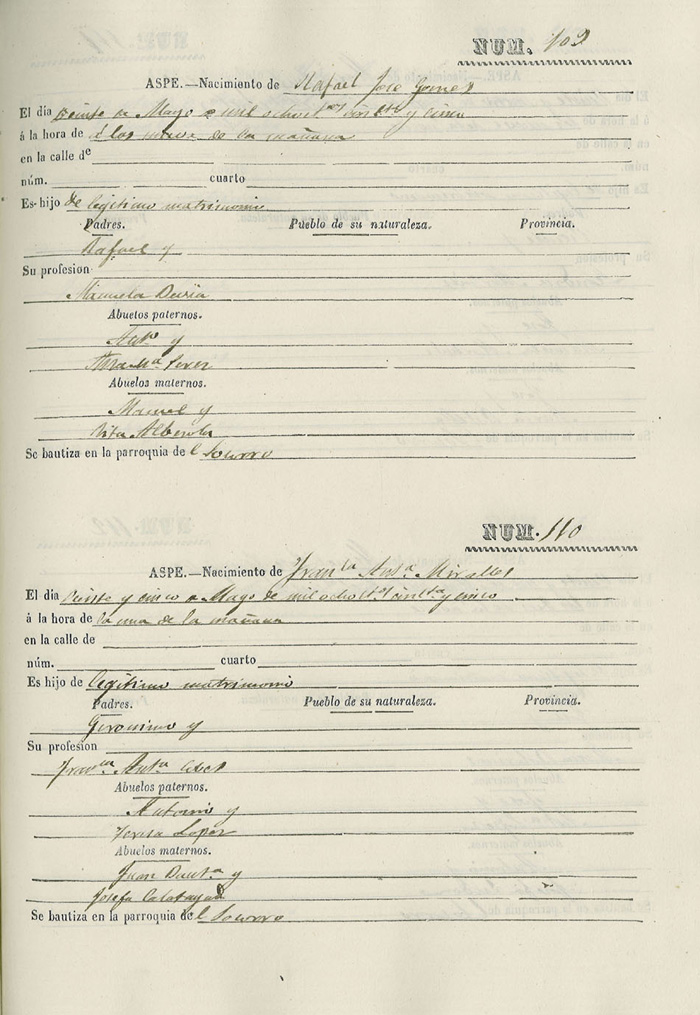 NUM. 109
ASPE.—Nacimiento de Rafael Jose Gomes
El día veinte de Mayo de mil ochotos cincta y cinco
á la hora de á las nueve de la mañana
en la calle de
núm. cuarto
Es hijo de legitimo matrimonio
Padres. Pueblo de su naturaleza. Provincia.
Rafael y
Su profesion
Manuela
Abuelos paternos.
Anto y
Abuelos maternos.
Manuel y
Rita Alberola
Se bautiza en la parroquia del Socorro
NUM. 110
ASPE.—Nacimiento de Franca Anta Miralles
El día veinte y cinco de Mayo de mil ochotos cincta y cinco
á la hora de la una de la mañana
en la calle de
núm. cuarto
Es hijo de legitimo matrimonio
Padres. Pueblo de su naturaleza. Provincia.
Geronimo y
Su profesion
Franca Anta
Abuelos paternos.
Antonio y
Teresa Lopez
Abuelos maternos.
Juan Bauta y
Josefa Calatayud
Se bautiza en la parroquia del Socorro